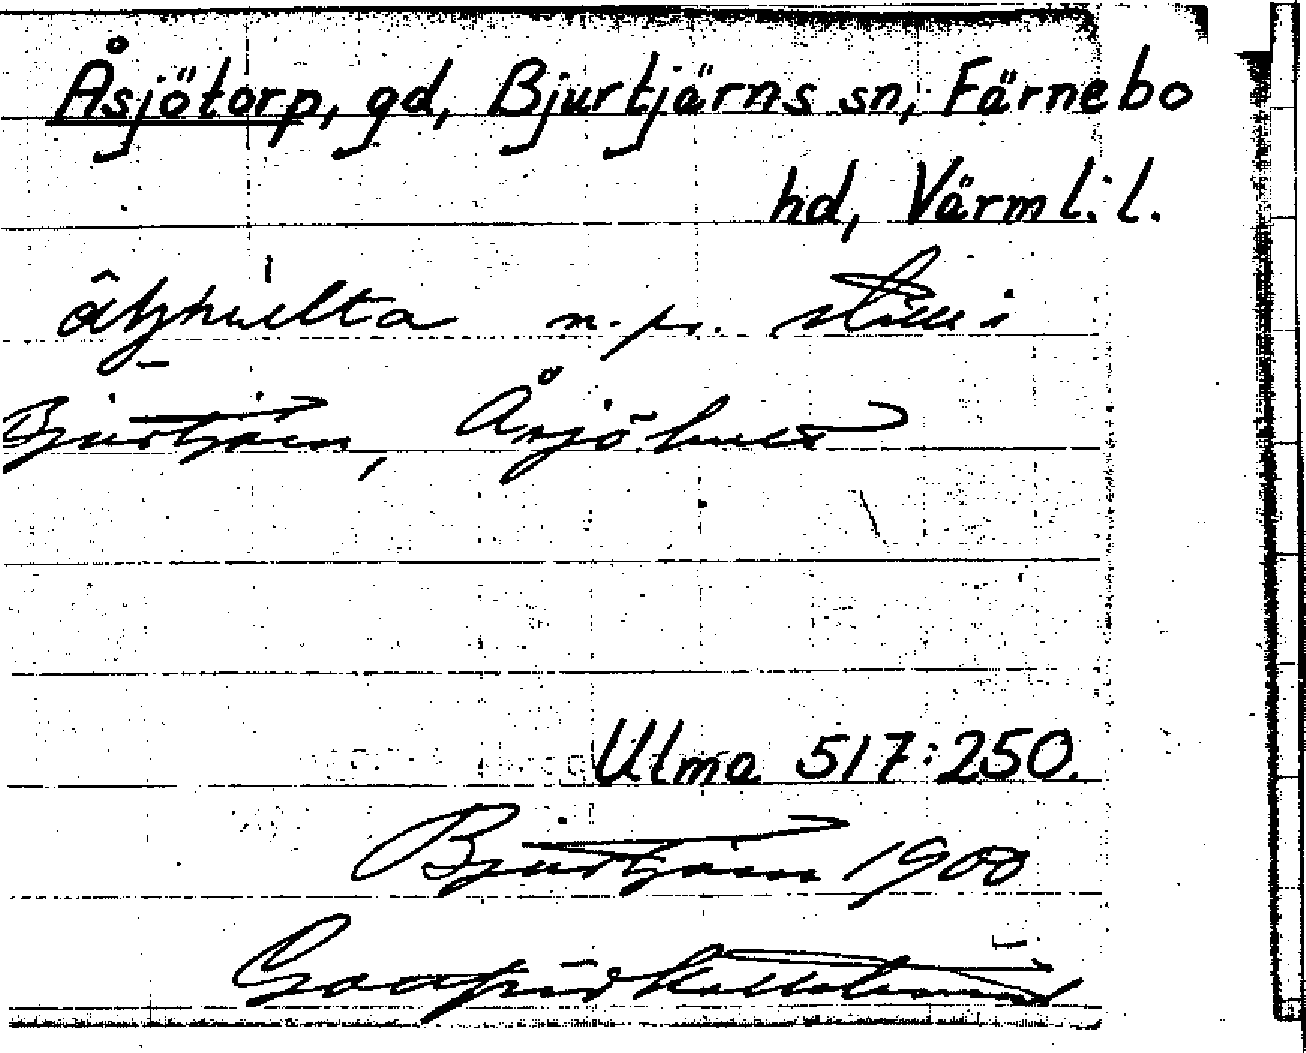 Åsjötorp, gd, Bjurtjärns sn, Färnebo
hd, Värml. l.
n. pr. ställe i
Bjurtjärn, Åsjöhult
Ulma 517:250.
Bjurtjärn 1900